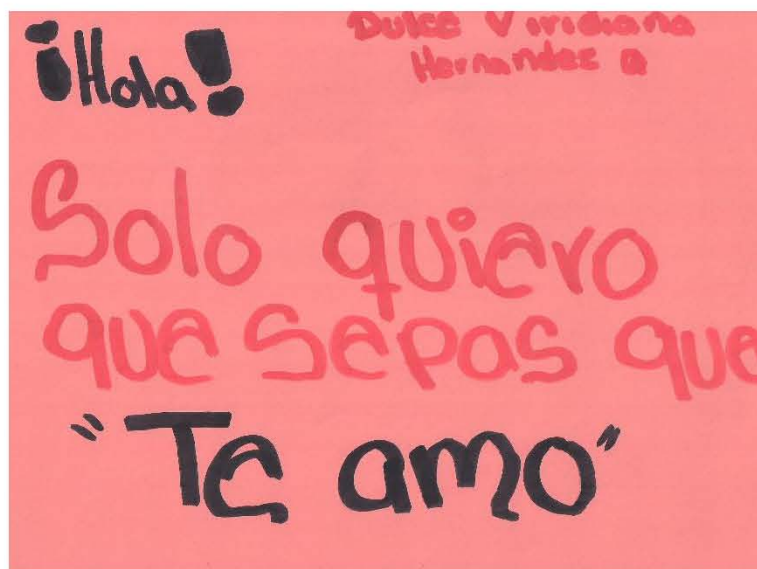 ¡Hola!
Dulce Viridiana
Hernandez a
Solo quiero
que sepas que
"Te amo"